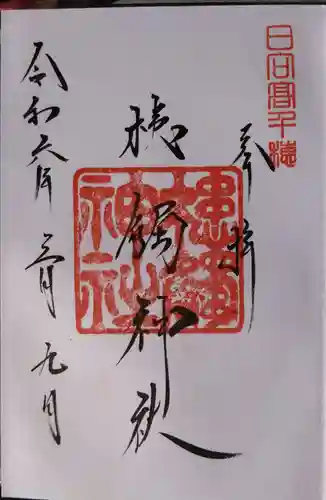 日向高千穂
奉拝
槵觸神社
槵觸神社
令和六年三月九日